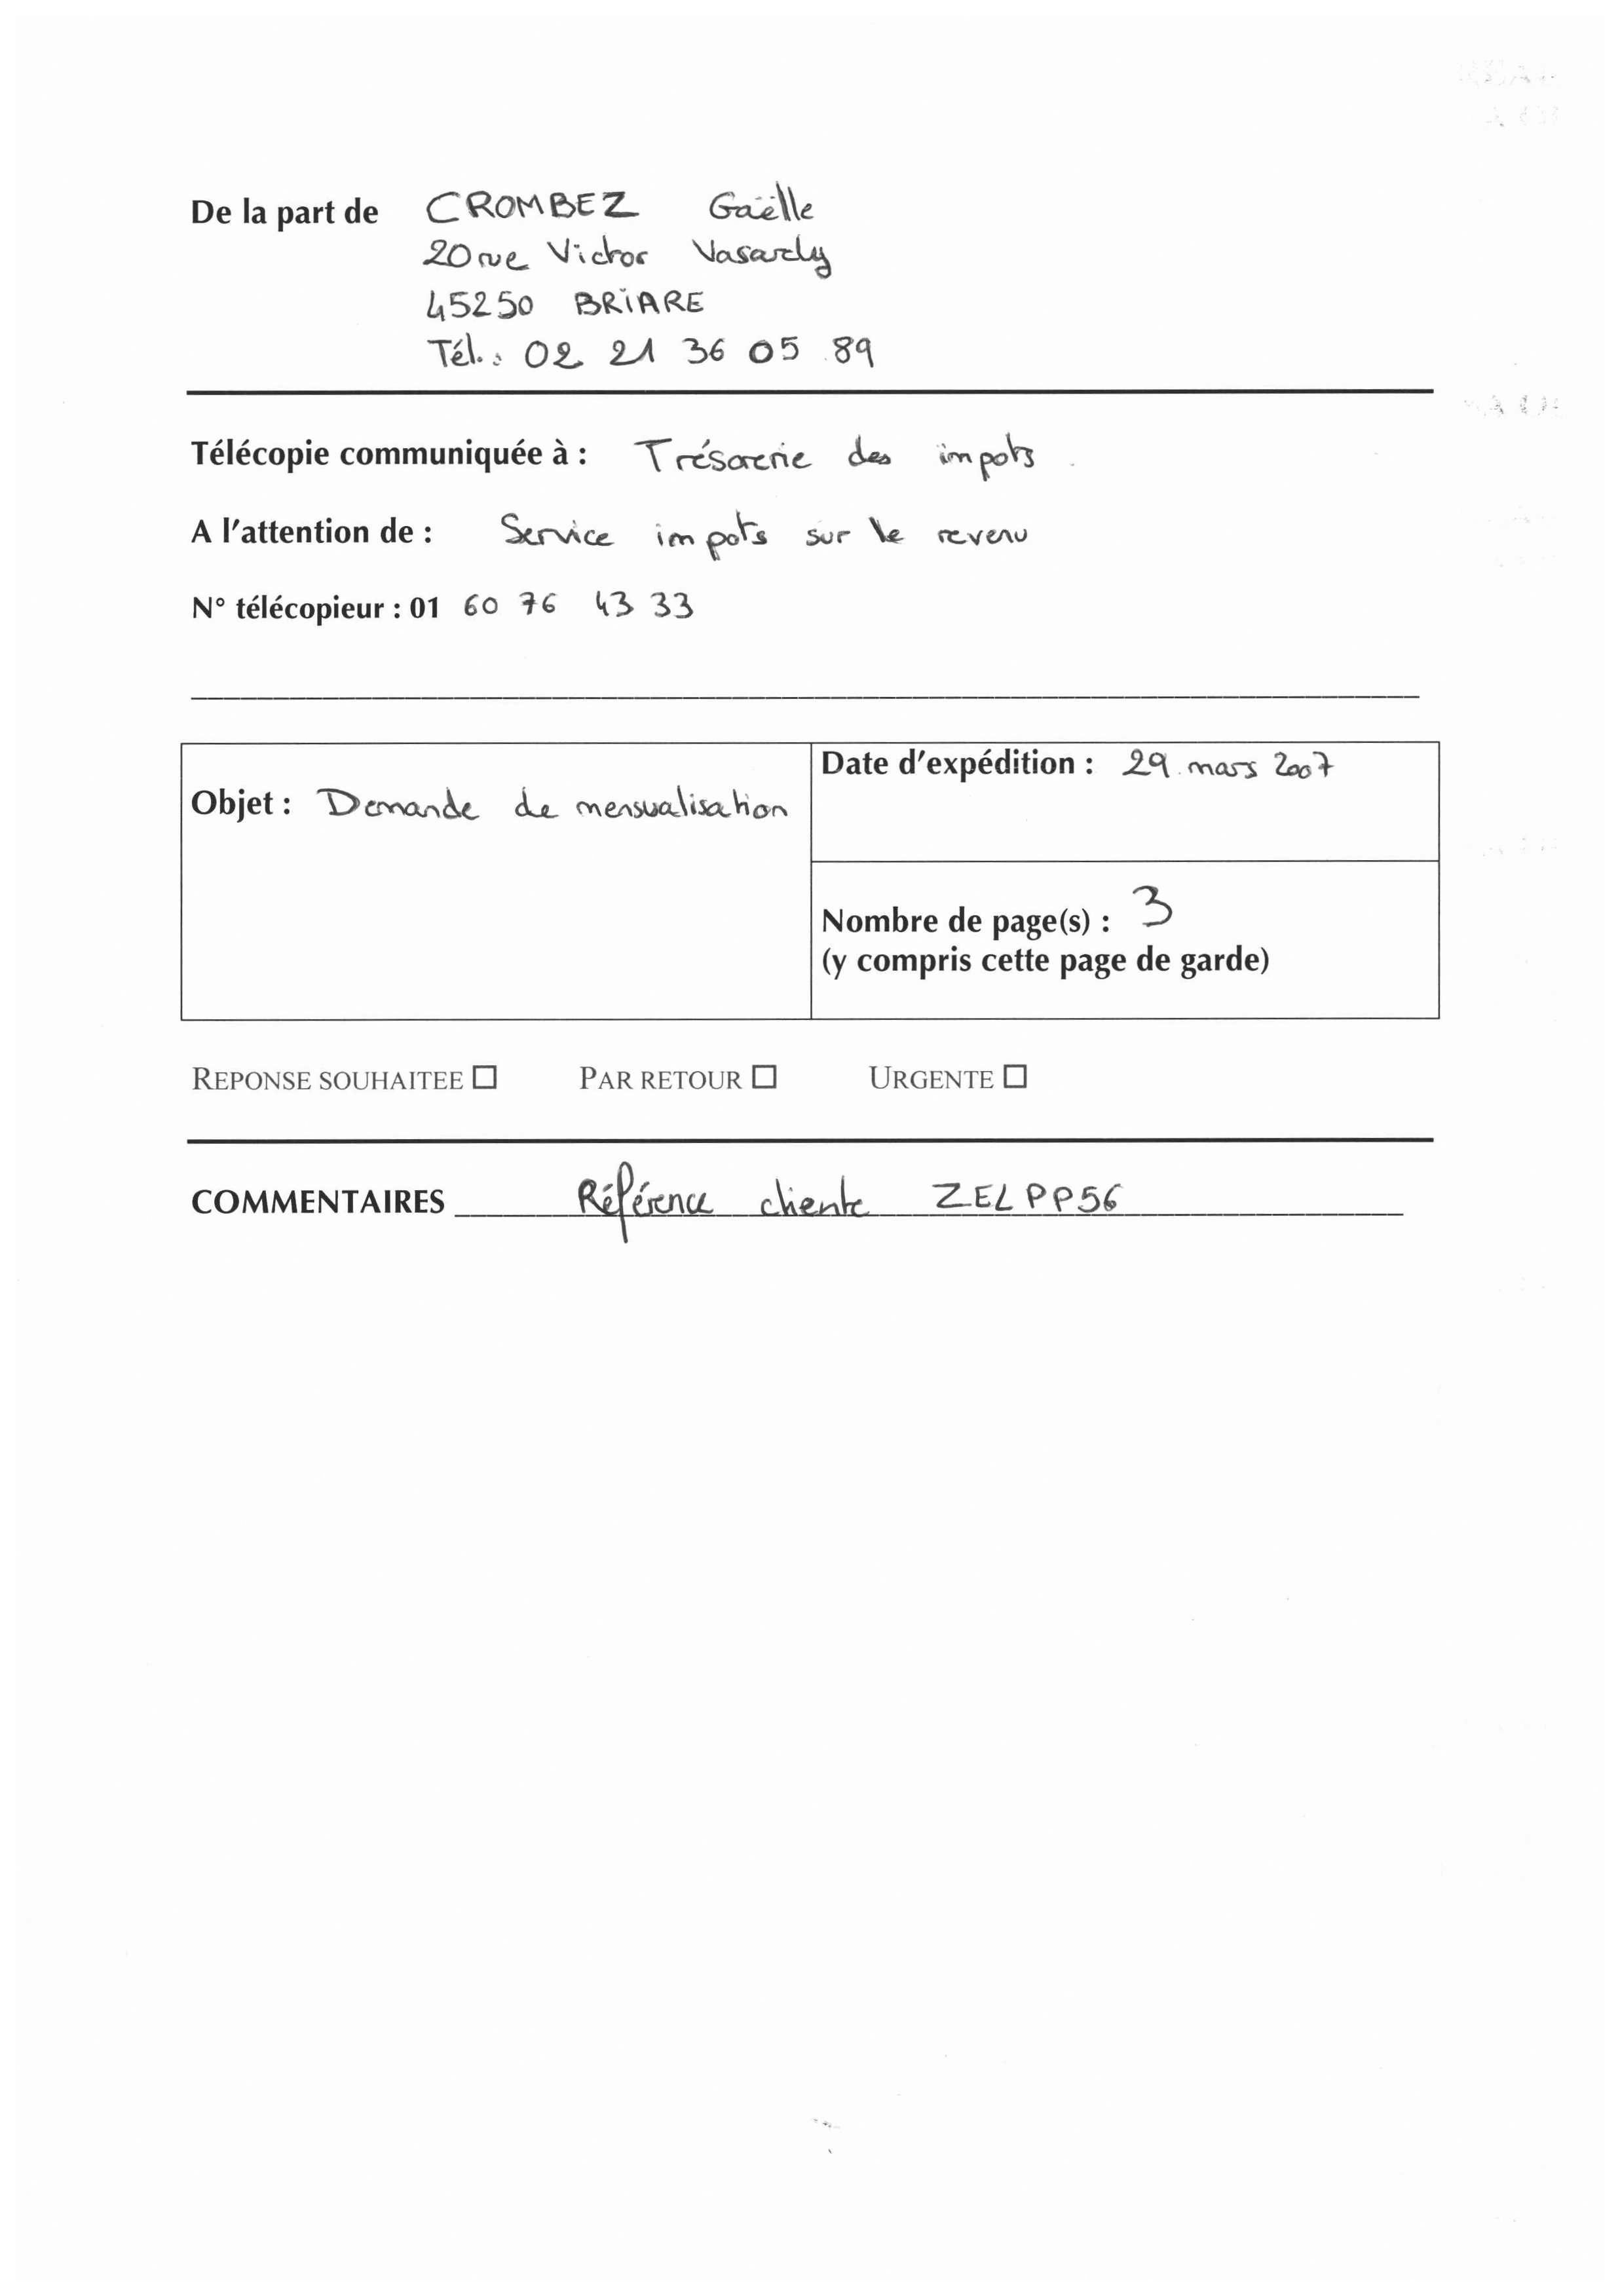 De la part de CROMBEZ Gaëlle
20 rue Victor Vasarely
45250 BRIARE
Tél. : 02 21 36 05 89
Télécopie communiquée à : Trésorerie des impots
A l'attention de : Service impots sur le revenu
N° télécopieur : 01 60 76 43 33
Date d'expédition : 29 mars 2007
Objet : Demande de mensualisation
Nombre de page(s) : 3
(y compris cette page de garde)
REPONSE SOUHAITEE □ PAR RETOUR □ URGENTE □
COMMENTAIRES Référence cliente ZELPP56